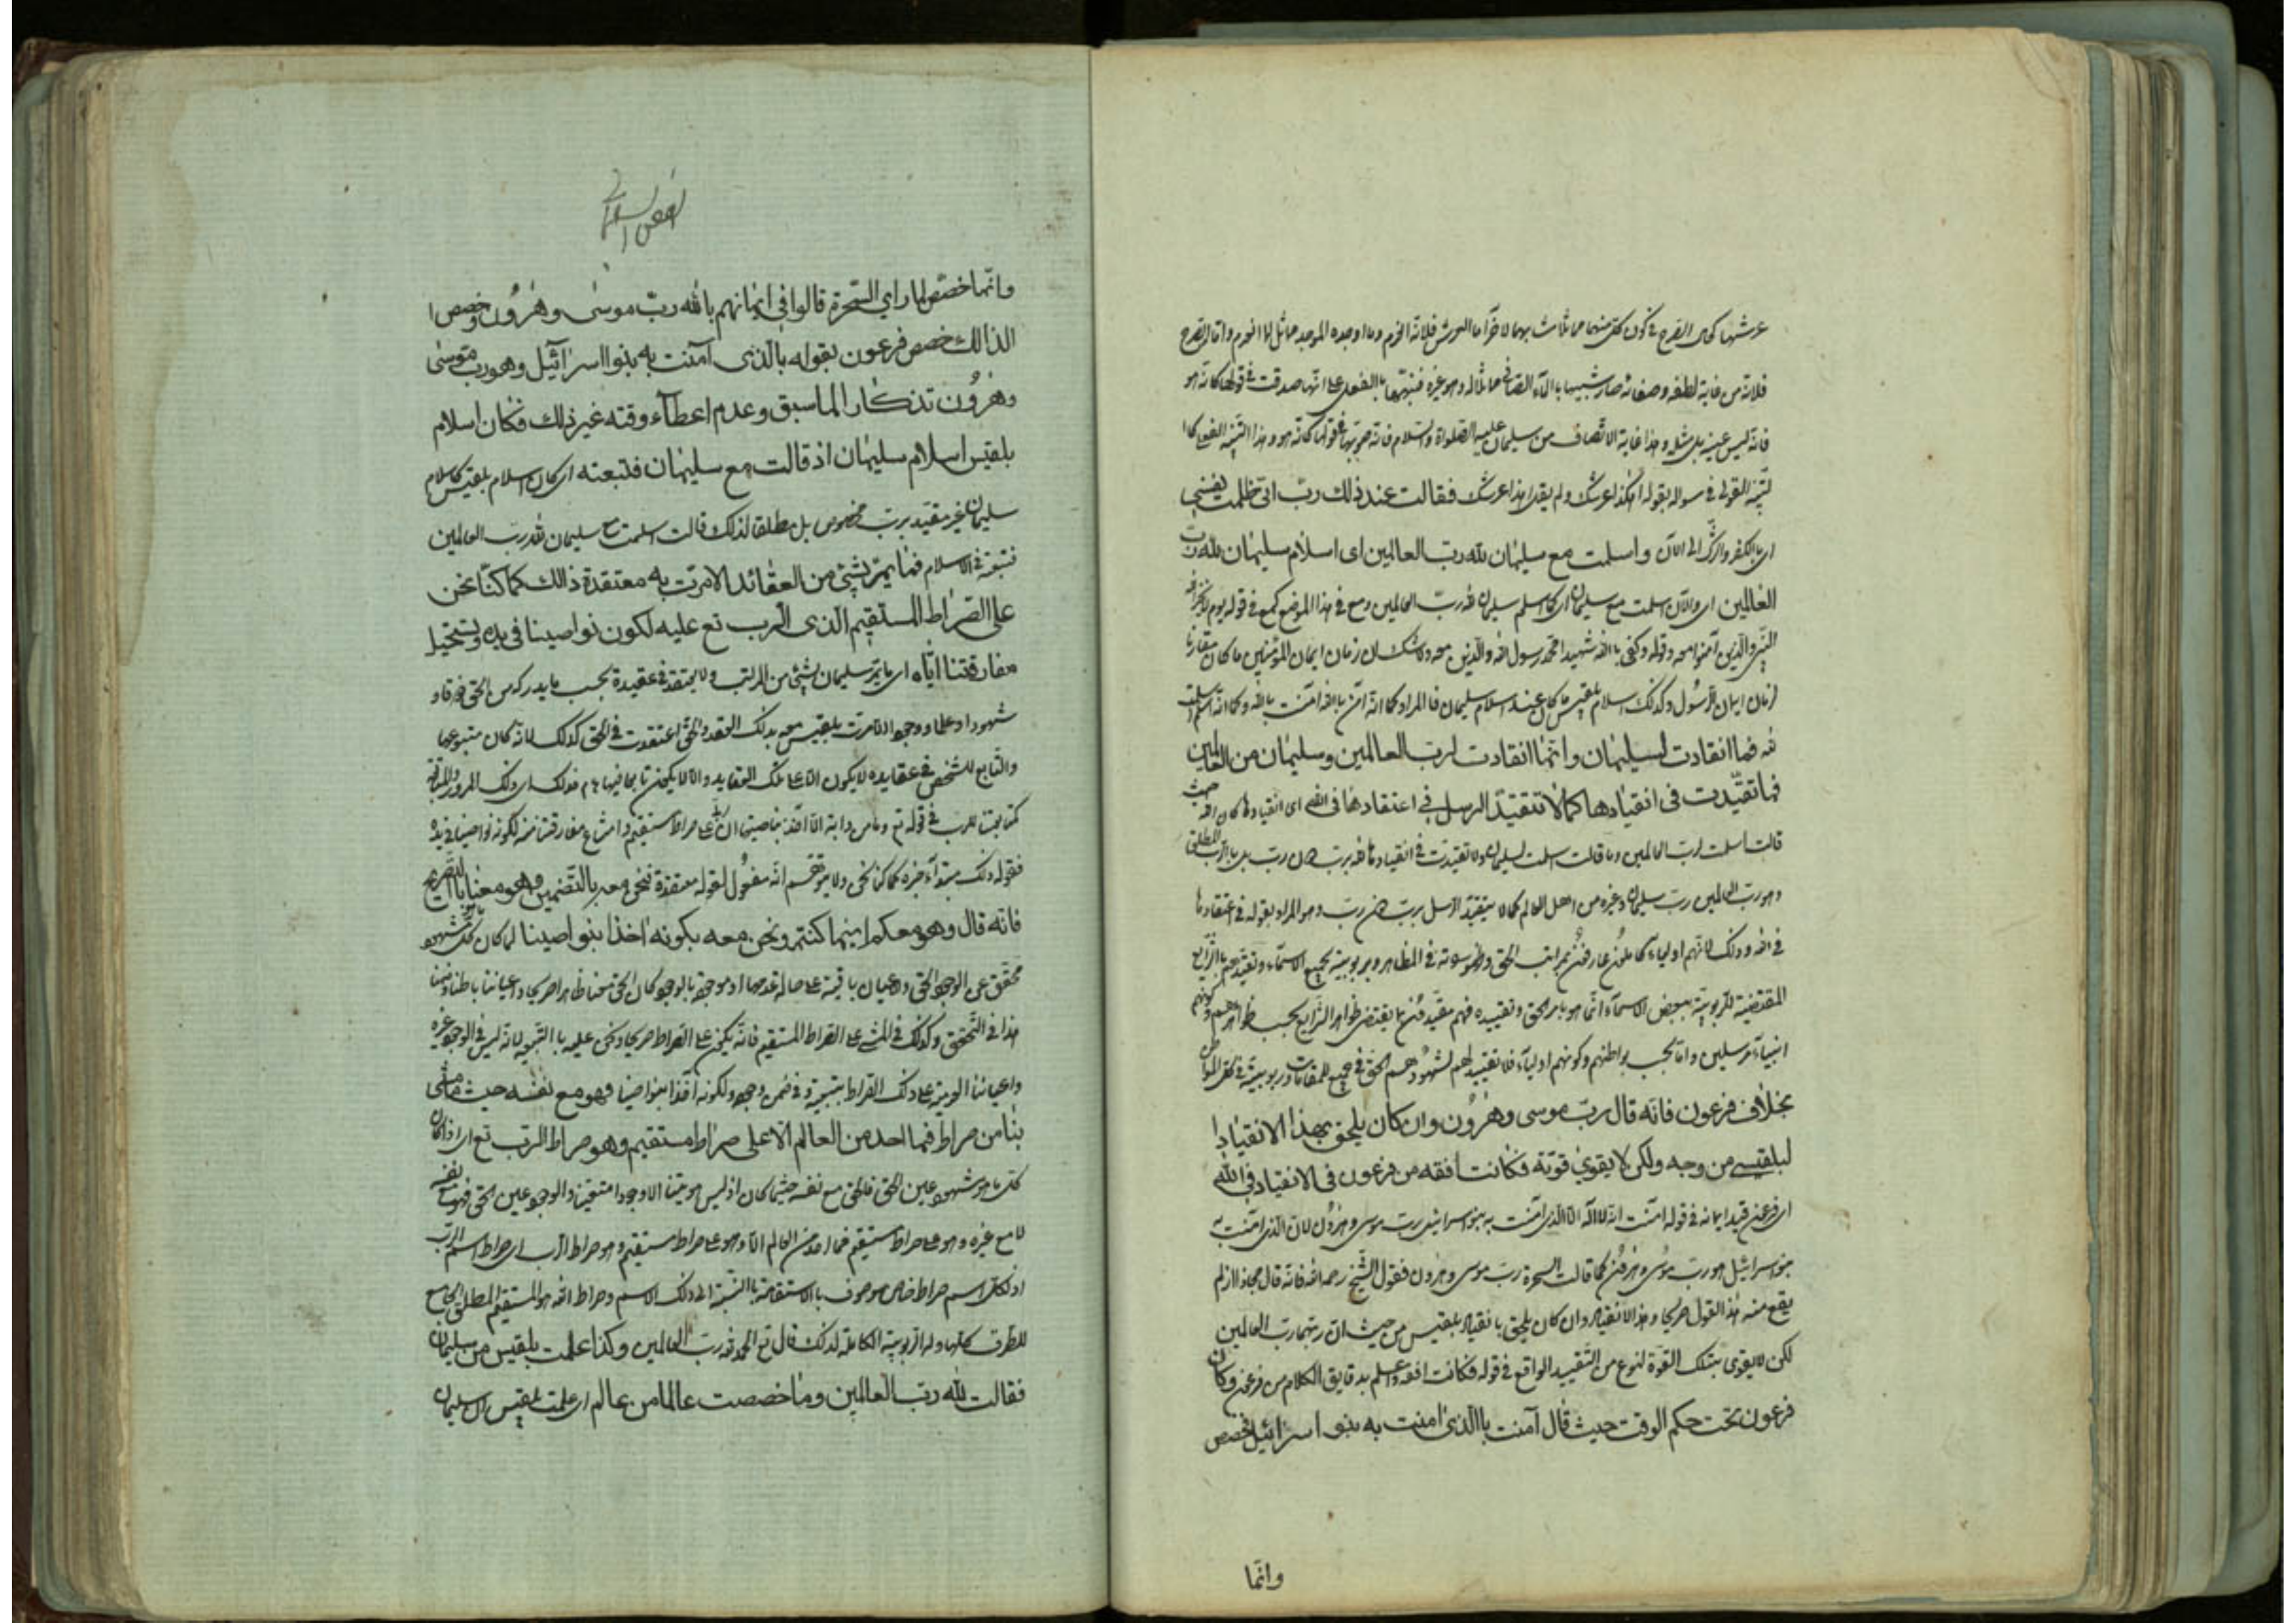 عرشها كحال الصرح في كون كل منهما مماثلا مشابها لآخر اما العرش فلانه انعدم وما اوجده الموجد مماثل لما انعدم واما الصرح
فلانه من غاية لطفه وصفائه صار شبيها بالماء الصافي مماثلا له وهو غيره فنبهها بالفعل على انها صدقت في قولها كانه هو
فانه ليس عينه بل مثله وهذا غاية الانصاف من سليمان عليه الصلواة والسلام فانه صوبها في قولها كانه هو وهذا التنبيه الفعلي كا
لتنبيه القولي في سواله بقوله اهكذا عرشك ولم يقل اهذا عرشك فقالت عند ذلك رب اني ظلمت نفسي
اي بالكفر والشرك الى الآن واسلمت مع سليمان لله رب العالمين اى اسلام سليمان لله رب
العالمين اي والآن اسلمت مع سليمان اي كما اسلم سليمان لله رب العالمين ومع في هذا الموضع كمع في قوله يوم لا يخزي الله
النبي والذين آمنوا معه وقوله وكفى بالله شهيدا محمد رسول الله والذين معه ولا شك ان زمان ايمان المؤمنين ما كان مقارنا
لزمان ايمان الرسول وكذلك اسلام بلقيس ما كان عند اسلام سليمان فالمراد كما انه آمن بالله آمنت بالله وكما انه اسلم اسلمت
لله فما انقادت لسليمان وانما انقادت لرب العالمين وسليمان من العالمين
فما تقيدت فى انقيادها كما لا تتقيد الرسل في اعتقادها فى الله اى انقيادها كان لله حيث
قالت اسلمت لرب العالمين وما قالت اسلمت لسليمان ولا تقيدت في انقيادها لله برب دون رب بل بالرب المطلق
وهو رب العالمين رب سليمان وغيره من اهل العالم كما لا يتقيد الرسل برب دون رب وهو المراد بقوله في اعتقادها
في الله وذلك لانهم اولياء كاملون عارفون بمراتب الحق وظهوراته في المظاهر وبربوبيته بجميع الاسماء وتقيدهم بالشرايع
المقتضية للربوبية ببعض الاسماء انما هو بامر الحق وتقييده فهم مقيدون بما يقتضى ظواهر الشرايع بحسب ظواهرهم وكونهم
انبياء مرسلين واما بحسب بواطنهم وكونهم اولياء فلا تقييد لهم لشهودهم الحق في جميع المقامات وربوبيته في كل المواطن
بخلاف فرعون فانه قال رب موسى وهٰرون وان كان يلحق بهذا الانقياد ا
لبلقيسي من وجه ولكن لا يقوى قوته فكانت افقه من فرعون فى الانقياد في الله
اى فرعون قيد ايمانه في قوله آمنت انه لا اله الا الذي آمنت به بنو اسرائيل برب موسى وهٰرون لان الذي آمنت به
بنو اسرائيل هو رب موسى وهٰرون كما قالت السحرة رب موسى وهٰرون فقول الشيخ رحمه الله فانه قال مجاز اذ لم
يقع منه هذا القول صريحا وهذا الانقياد وان كان يلحق بانقياد بلقيس من حيث ان ربهما رب العالمين
لكن لا يقوى بتلك القوة لنوع من التقييد الواقع في قوله فكانت افقه واعلم بدقايق الكلام من فرعون وكان
فرعون تحت حكم الوقت حيث قال آمنت باالذى امنت به بنو اسرائيل فخصص
وانما
الفص السليماني
وانما خصص لما راي السحرة قالوا في ايمانهم بالله رب موسى وهٰرون وخصص ا
لذالك خصص فرعون بقوله بالذى آمنت به بنوا اسرائيل وهو رب موسى
وهٰرون تذكار الما سبق وعدم اعطاء وقته غير ذلك فكان اسلام
بلقيس اسلام سليمان اذ قالت مع سليمان فتبعته اي كان اسلام بلقيس كاسلام
سليمان غير مقيد برب مخصوص بل مطلقا لذلك قالت اسلمت مع سليمان لله رب العالمين
فتبعته في الاسلام فما يمر بشئ من العقائد الا مرت به معتقدة ذالك كما كنا نحن
على الصراط المستقيم الذى الرب تع عليه لكون نواصينا فى يده ويستحيل
مفارقتنا اياه اى ما يمر سليمان بشئ من المراتب ولا يعتقد في عقيدة بحسب ما يدركه من الحق ذوقا و
شهودا وعلما ووجودا الا مرت بلقيس معه بذلك العقد والحق اعتقدت في الحق كذلك لانه كان متبوعها
والتابع للشخص في عقايده لا يكون الا على تلك العقايد والا لا يكون تابعا فيها تم فذلك اى ذلك المرور والموافقة
كتابعيتنا للرب في قوله تع وما من دابة الا هو آخذ بناصيتها ان ربي على صراط مستقيم وامتناع مفارقتنا منه لكونه نواصينا في يده
فقوله ذلك مبتدأ وخبره كما كنا نحن ولا يتوهم انه مفعول لقوله معتقدة فنحن معه بالتضمين وهو معنا باالتصريح
فانه قال وهو معكم اينما كنتم ونحن معه بكونه اخذا بنواصينا لما كان كل مشهود
محقق عن الوجود الحق والاعيان باقية على حالة عدمها او موجودة بالوجود كان الحق معنا ظاهرا صريحا واعياننا باطنا وضمنا
هذا في التحقق وكذلك في المشي على الصراط المستقيم فانه يكون على الصراط صريحا ونحن عليه باالتبعية لانه ليس في الوجود غيره
واعياننا الوميه على ذلك الصراط بتبعيته وفي ضمن وجوده لكونه آخذا بنواصينا فهو مع نفسه حيث ما مشى
بنا من صراط فما احد من العالم الا على صراط مستقيم وهو صراط الرب تع اى اذا كان
كل ما هو مشهود عين الحق فالحق مع نفسه حيثما كان اذ ليس هويتنا الا وجودا متعينا والوجود عين الحق فهو مع نفسه
لا مع غيره وهو على صراط مستقيم فما احد من العالم الا وهو على صراط مستقيم وهو صراط الرب اى صراط اسم الرب
اذ لكل اسم صراط خاص موصوف بالاستقامة باالنسبة الى ذلك الاسم وصراط الله هو المستقيم المطلق الجامع
للطرق كلها وله الربوبية الكاملة لذلك قال تع الحمد لله رب العالمين وكذا علمت بلقيس من سليمان
فقالت لله رب العالمين وما خصصت عالما من عالم اى علمت بلقيس ان سليمان